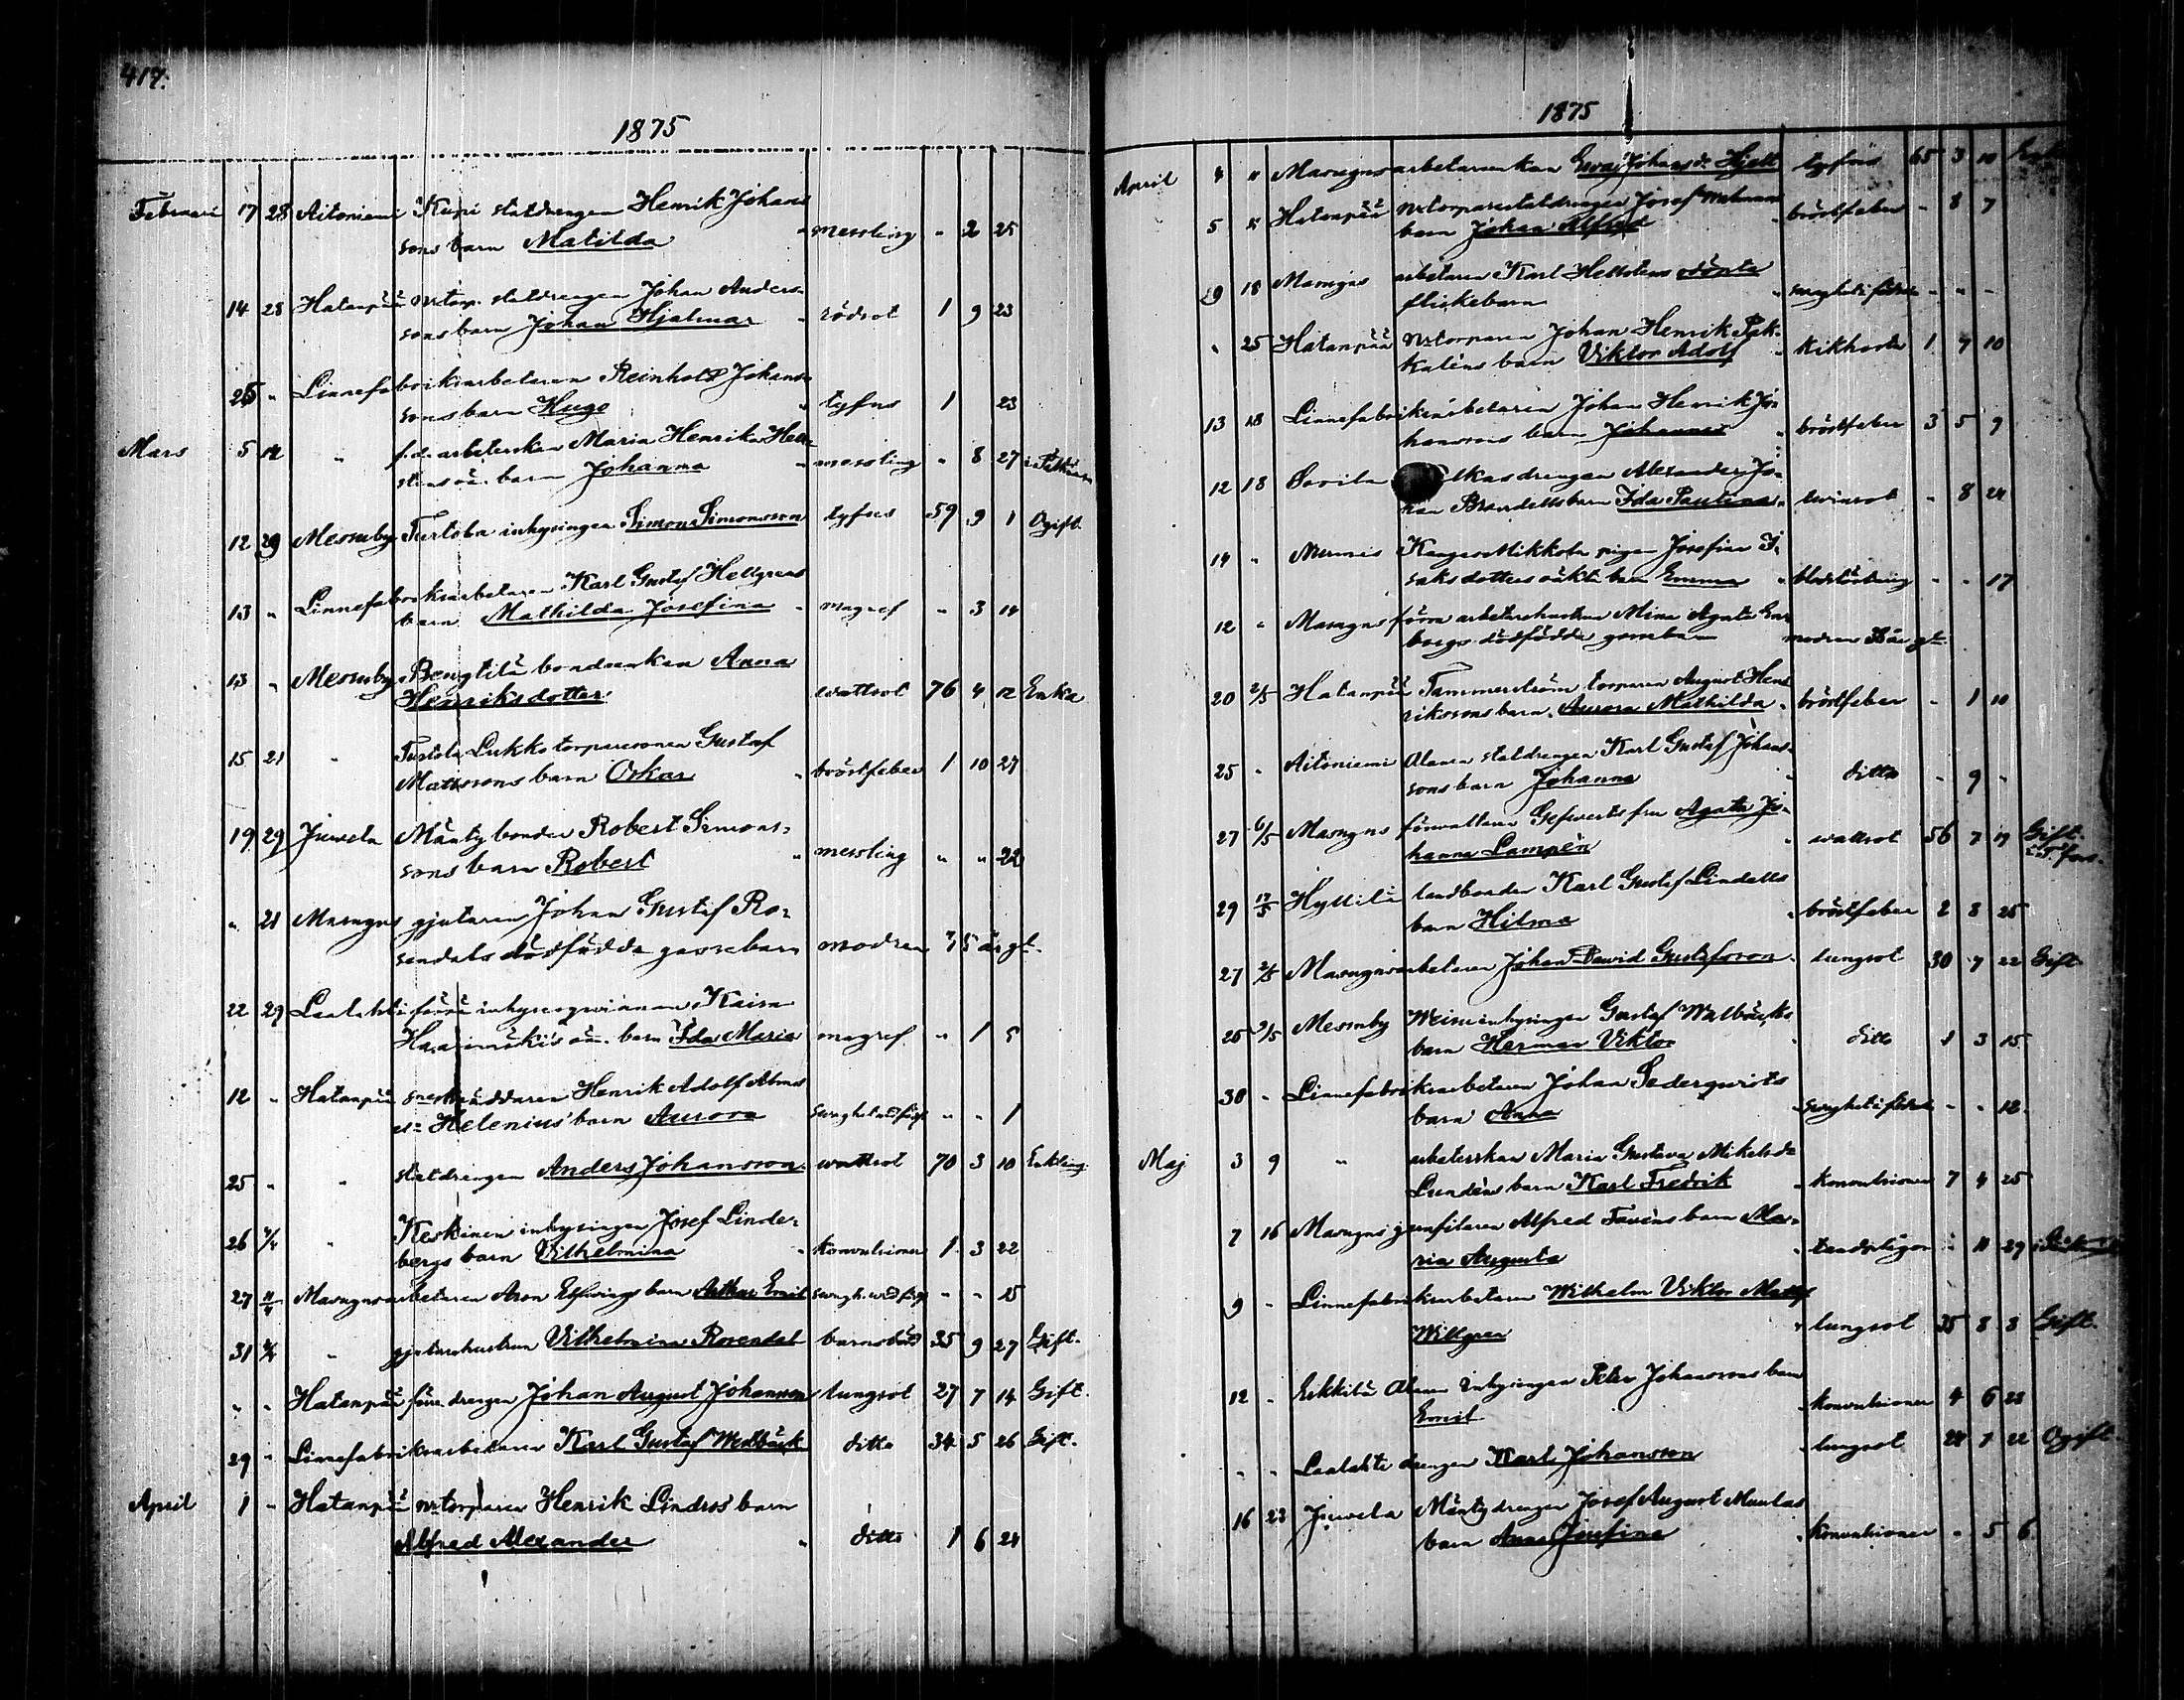 417.
1875
Februari 17 28 Aitoniemi Kupi statdrengen Henrik Johans
sons barn Matilda " messling " 2 25
14 28 Hatanpää nrtorp. statdrengen Johan Anders-
sons barn Johan Hjalmar " rödsot 1 9 23
25 " Linnefabriksarbetaren Reinhold Johans-
sons barn Hugo " tyfus 1 23
Mars 5 14 " f.d. arbeterskan Maria Henrika Hell-
stens oä. barn Johanna " messling " 8 27
12 29 Messuby Turtola inhysingen Simon Simonsson tyfus 59 9 1 Ogift.
13 " Linnefabriksarbetaren Karl Gustaf Hellgrens
barn Mathilda Josefina " magref " 3 14
13 " Messuby Bengtilä bondeenkan Anna
Henriksdotter wattsot 76 4 12 Enka
15 21 " Turtola Lukko torparesonen Gustaf
Mattssons barn Oskar " bröstfeber 1 10 27
19 29 Juvela Mänty bonden Robert Simons-
sons barn Robert " messling " " 22
" 21 Masugns gjutaren Johan Gustaf Ro-
sendals dödfödda gossebarn modren 35 år gl.
22 29 Laalahti förra inhysesqvinnan Kaisa
Haarimäki's oä. barn Ida Maria magref " 1 5
12 " Hatanpää skräddaren Henrik Adolf
Helenius' barn Aurora " " 1
25 " " statdrengen Anders Johansson wattsot 70 3 10 Enkling.
26 4/4 " Keskinen inhysingen Josef Linder-
bergs barn Vilhelmina " konvulsioner 1 3 22
27 11/4 Masugnsarbetaren Aron Elfvings barn Arthur Emil " " 25
31 4/4 " gjutarehustrun Vilhelmina Rosendal barnsbörd 35 9 27 Gift.
" " Hatanpää förra drengen Johan August Johansson lungsot 27 7 14 Gift.
29 " Linnefabriksarbetaren Karl Gustaf Wedbäck ditto 34 5 26 Gift.
April 1 " Hatanpää nrtorparen Henrik Lindros' barn
Alfred Alexander " ditto 1 6 24
1875
April 4 " Masugnsarbetareenkan Eva Johansdr Hjelt tyfus 65 3 10
5 " Hatanpää nrtorparestatdrengen Josef
barn Johan Alfred " bröstfeber " 8 7
9 18 Masugns arbetaren Karl Hellstens odöpta
flickebarn " " " "
" 25 Hatanpää nrtorparen Johan Henrik Pak-
kalèns barn Viktor Adolf " kikhosta 1 7 10
13 18 Linnefabriksarbetaren Johan Henrik Jo-
hanssons barn Johannes " bröstfeber 3 5 9
12 18 Sorila drengen Alexander Jo-
han Brandells barn Ida Paulina " 8 24
14 " Messuby Kangas Mikkola pigan Josefina I-
saksdotters oäkta barn Emma " " " 17
12 " Masugns förra arbetarehustrun Mina Agata
bergs dödfödda gossebarn modren
20 2/5 Hatanpää Tammerström torparen August Hen-
rikssons barn Aurora Mathilda " bröstfeber " 1 10
25 " Aitoniemi Alanen statdrengen Karl Gustaf Johans-
sons barn Johanna " ditto " 9 "
27 6/5 Masugns förvaltaren Gefverts fru Agata Jo-
hanna Lampén " wattsot 56 7 17 Gift.
29 17/5 Hyllilä landbonden Karl Gustaf Lindells
barn Hilma " bröstfeber 2 8 25
27 2/5 Masugnsarbetaren Johan David Gustafsson lungsot 30 7 22 Gift
25 2/5 Messuby inhysingen Gustaf Walbäcks
barn Herman Viktor " ditto 1 3 15
30 " Linnefabriksarbetaren Johan Sederqvists
barn Anna " " " 12
Maj 3 9 " arbeterskan Maria Gustava Mikelsdr
Lundéns barn Karl Fredrik " konvulsioner 7 4 25
7 16 Masugns filaren Alfred barn Ma-
ria Augusta " " 11 29
9 " Linnefabriksarbetaren Wilhelm Viktor Matts
Willgren " lungsot 35 8 3 Gift.
12 " Erkkilä Alanen inhysingen Peter Johanssons barn
Emil " konvulsioner 4 6 28
" " Laalahti drengen Karl Johansson " lungsot 24 7 22 Ogift.
16 23 Juvela Mänty drengen Josef August
barn Anna Josefina " konvulsioner " 5 6